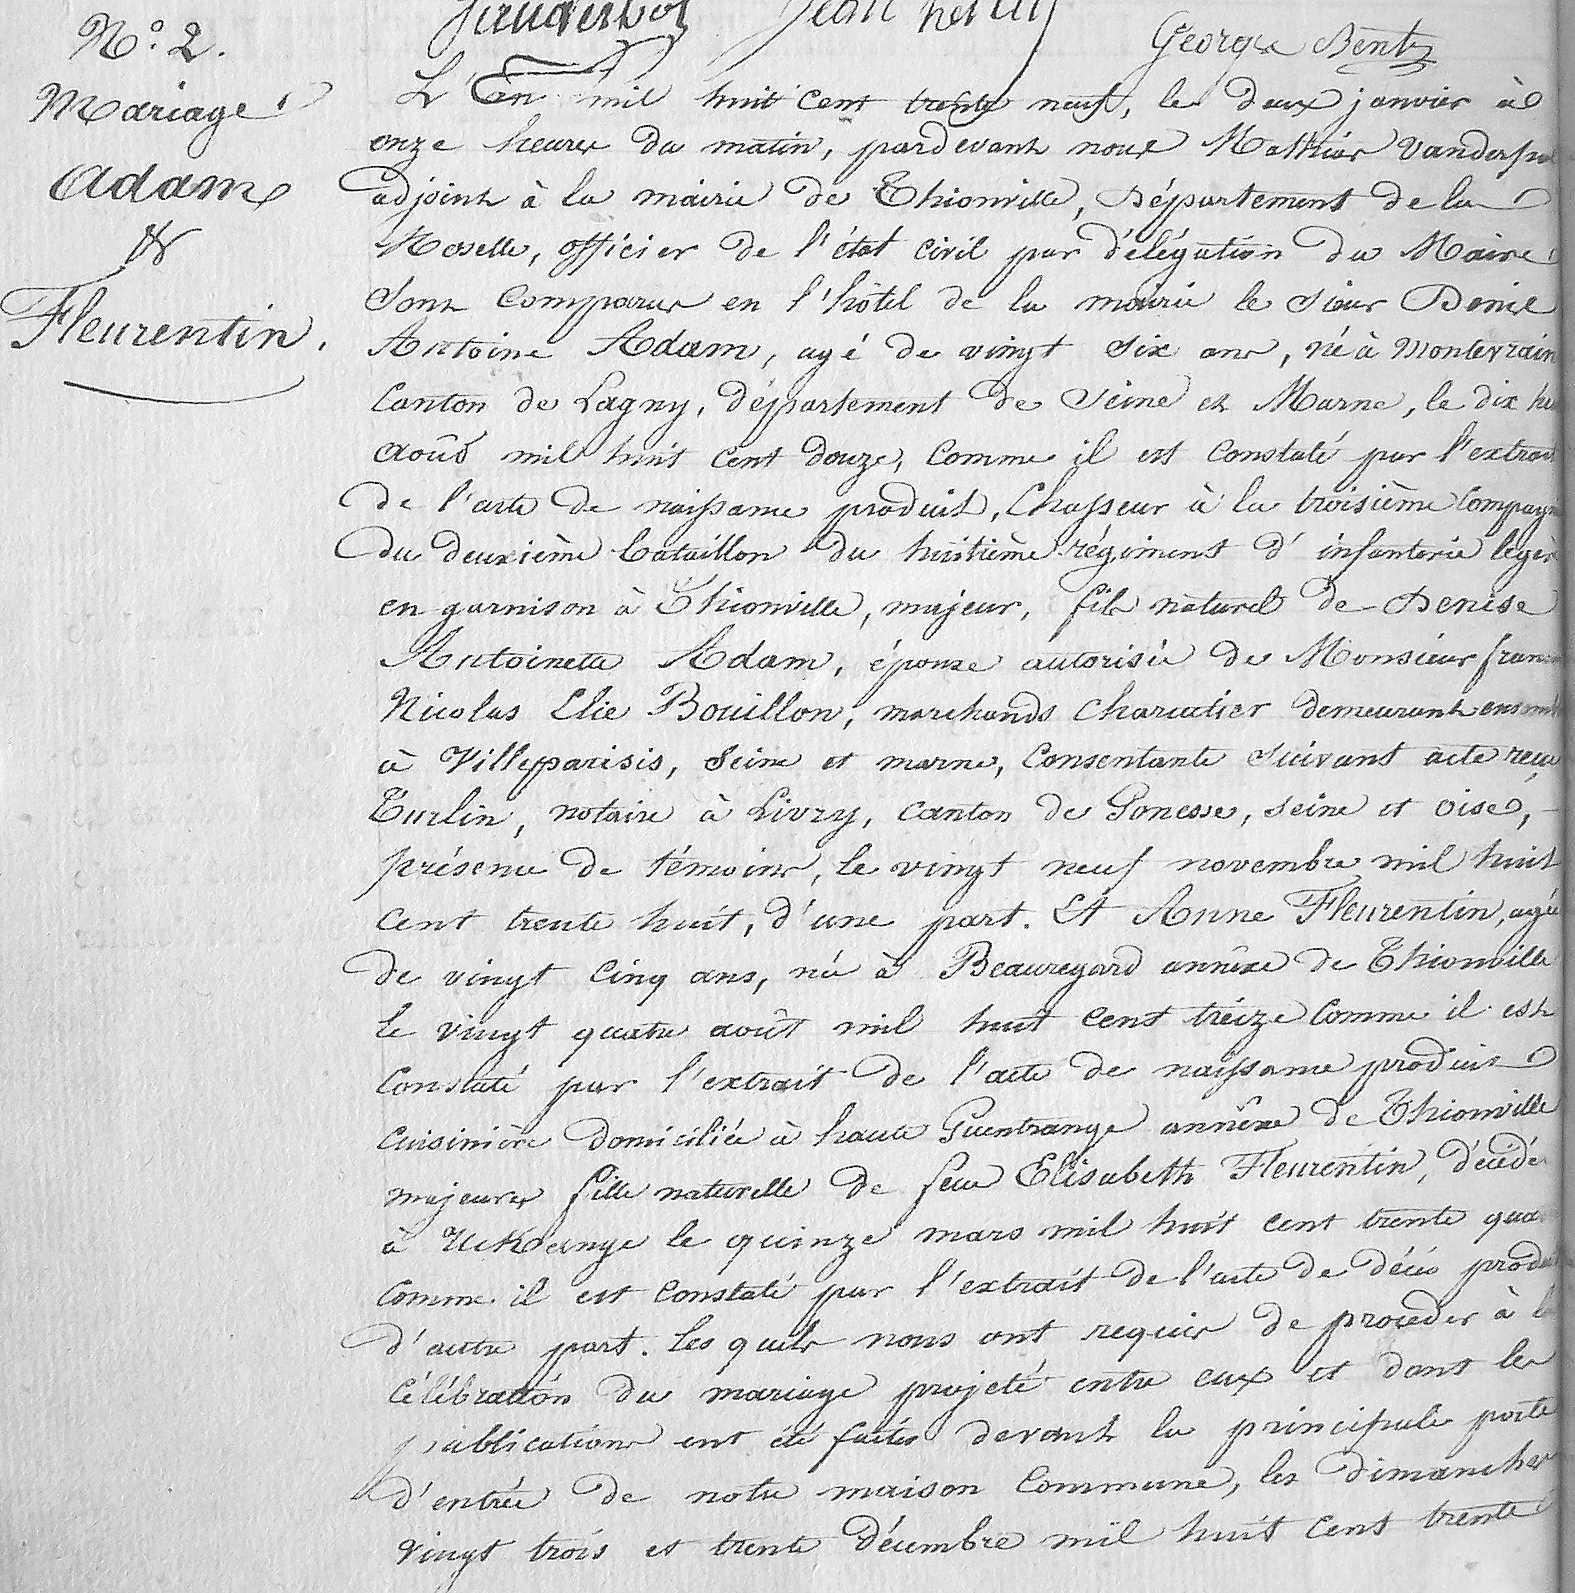 Jean
George Bentz
N.º 2.
Mariage
Adam
&
Fleurentin.
L'An mil huit cent trente neuf, le deux janvier à
onze heures du matin, pardevant nous Mathias
adjoint à la mairie de Thionville, Département de la
Moselle, officier de l'état civil par délégation du Maire
Sont Comparus en l'hôtel de la mairie le sieur Denis
Antoine Adam, agé de vingt six ans, né à Montevrain
Canton de Lagny, département de Seine et Marne, le dix
août mil huit cent douze, Comme il est Constaté par l'extrait
de l'acte de naissance produit, Chasseur à la troisième Compagnie
du deuxième bataillon du huitième régiment d'infanterie légère
en garnison à Thionville, majeur, fils naturel de Denise
Antoinette Adam, épouse autorisée de Monsieur
Nicolas Elie Bouillon, marchands Charcutier demeurant ensemble
à Villeparisis, Seine et marne, Consentante Suivant acte reçu
Turlin, notaire à Livry, Canton de Gonesse, Seine et oise, -
présence de témoins, le vingt neuf novembre mil huit
cent trente huit, d'une part. Et Anne Fleurentin, agée
de vingt Cinq ans, née à Beauregard annêxe de Thionville
le vingt quatre août mil huit cent treize Comme il est
Constaté par l'extrait de l'acte de naissance produit
Cuisinière domiciliée à haute Guentrange annêxe de Thionville
majeure fille naturelle de feue Elisabeth Fleurentin, décédée
à Uckange le quinze mars mil huit cent trente
Comme il est Constaté par l'extrait de l'acte de décès produit
d'autre part. Les quels nous ont requis de proceder à la
Célébration du mariage projeté entre eux et dont les
publications ont été faites devant la principale porte
d'entrée de notre maison Commune, les dimanches
vingt trois et trente décembre mil huit cent trente